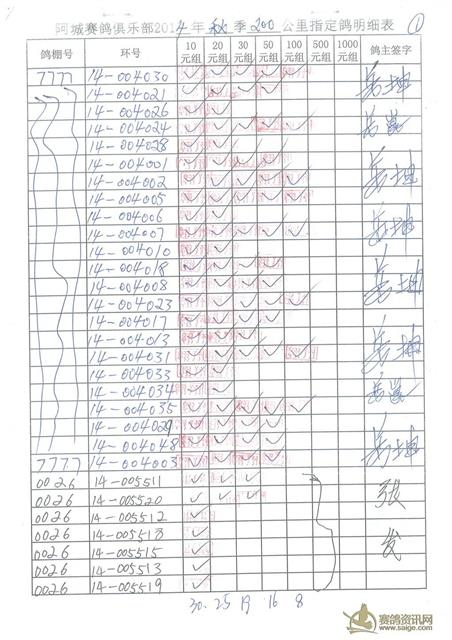 阿城赛鸽俱乐部2014年秋季200公里指定鸽明细表 ①
鸽棚号 环号 10元组 20元组 30元组 50元组 100元组 500元组 1000元组 鸽主签字
7777 14-004030 ✓ ✓
14-004021 ✓ ✓ ✓ ✓
14-004026 ✓ ✓
14-004024 ✓ ✓ ✓ ✓ ✓
14-004028 ✓ ✓
14-004001 ✓ ✓ ✓ ✓
14-004002 ✓ ✓ ✓ ✓ ✓
14-004005 ✓ ✓ ✓ ✓ ✓
14-004006 ✓ ✓
14-004007 ✓ ✓ ✓ ✓ ✓
14-004010 ✓ ✓
14-004018 ✓ ✓ ✓ ✓
14-004008 ✓ ✓ ✓ ✓
14-004023 ✓ ✓ ✓ ✓ ✓
14-004017 ✓ ✓ ✓ ✓
14-004013 ✓ ✓ ✓
14-004031 ✓ ✓ ✓ ✓ ✓
14-004033 ✓ ✓
14-004034 ✓ ✓
14-004035 ✓ ✓ ✓ ✓ ✓
14-004029 ✓ ✓ ✓ ✓
14-004048 ✓ ✓ ✓ ✓
7777 14-004003 ✓ ✓ ✓ ✓
0026 14-005511 ✓ ✓ ✓
0026 14-005520 ✓ ✓ ✓ 张
0026 14-005512 ✓
0026 14-005518 ✓
0026 14-005515 ✓ 发
0026 14-005513 ✓
0026 14-005519 ✓
30 25 19 16 8
赛鸽资讯网
www.saige.com